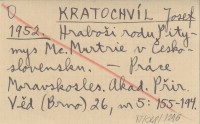 O KRATOCHVÍL Josef
1952. Hraboši rodu Pity-
mys Mc. Murtrie v Česko-
slovensku. — Práce
Moravskoslez. Akad. Přír.
Věd (Brno) 26, no 5: 155-194.